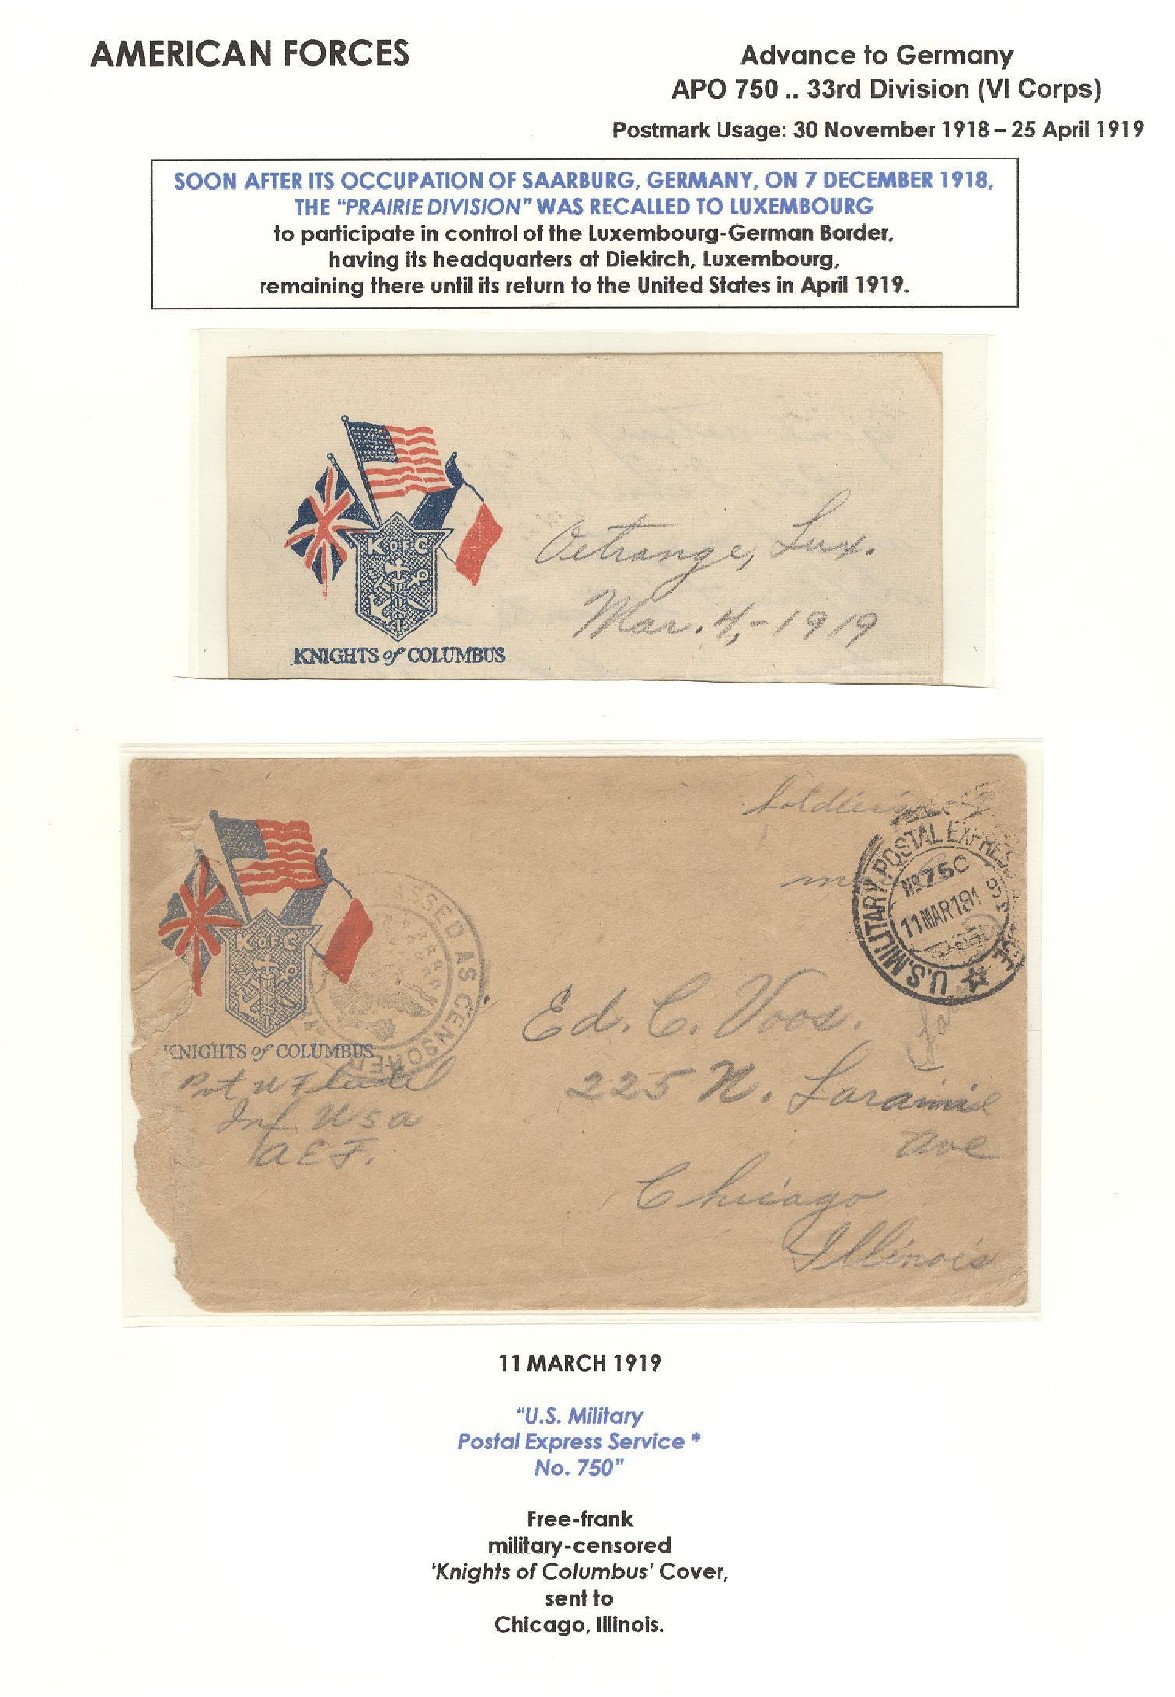 AMERICAN FORCES
Advance to Germany
APO 750 .. 33rd Division (VI Corps)
Postmark Usage: 30 November 1918 – 25 April 1919
SOON AFTER ITS OCCUPATION OF SAARBURG, GERMANY, ON 7 DECEMBER 1918,
THE "PRAIRIE DIVISION" WAS RECALLED TO LUXEMBOURG
to participate in control of the Luxembourg-German Border,
having its headquarters at Diekirch, Luxembourg,
remaining there until its return to the United States in April 1919.
K OF C
KNIGHTS of COLUMBUS
Oetrange, Lux.
Mar. 4, - 1919
Soldier's
U.S. MILITARY POSTAL EXPRESS
No 750
11 MAR 19
K OF C
KNIGHTS of COLUMBUS
PASSED AS CENSORED
Pvt W F
Inf. USA
AEF.
Ed. C. Voos.
225 N. Laramie
Ave
Chicago
Illinois
11 MARCH 1919
"U.S. Military
Postal Express Service *
No. 750"
Free-frank
military-censored
'Knights of Columbus' Cover,
sent to
Chicago, Illinois.